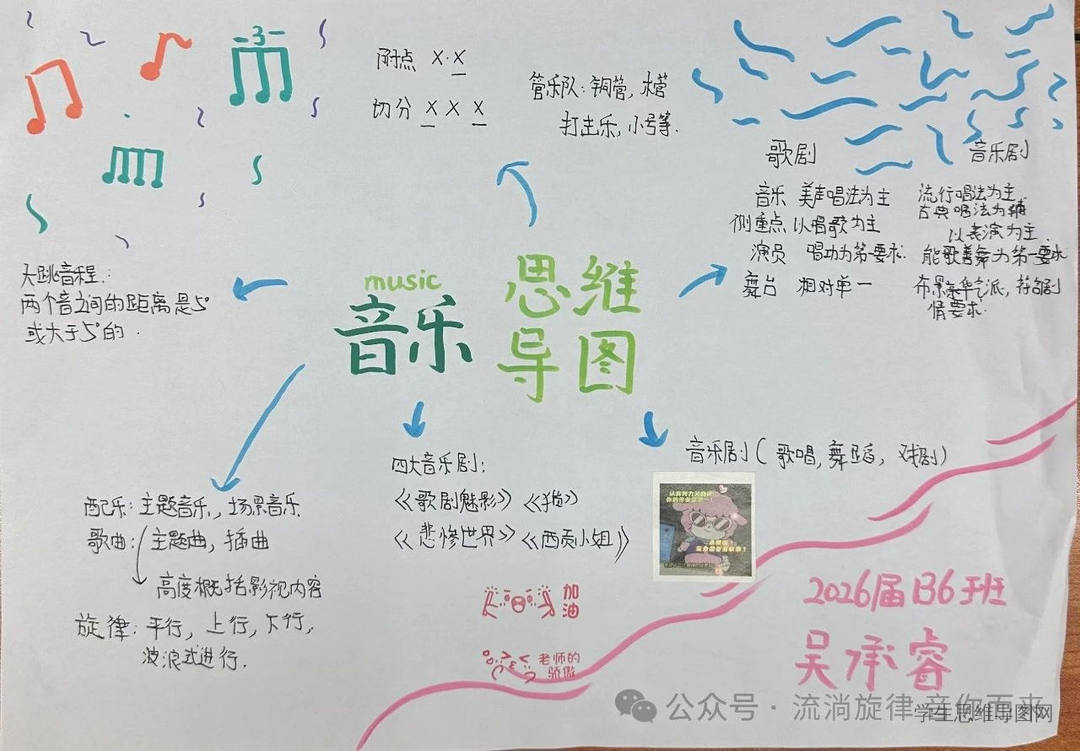 3
附点 X·X
切分 X X X
管乐队：铜管，木管
打击乐，小号等.
歌剧 音乐剧
音乐 美声唱法为主 流行唱法为主.
古典唱法为辅
侧重点 以唱歌为主 以表演为主.
演员 唱功为第一要求. 能歌善舞为第一要求
舞台 相对单一 布景豪华气派，符合剧
情要求.
大跳音程：
两个音之间的距离是5°
或大于5°的.
music
音乐
思维
导图
配乐：主题音乐，场景音乐
歌曲：主题曲，插曲
高度概括影视内容
旋律：平行，上行，下行，
波浪式进行.
四大音乐剧：
《歌剧魅影》《猫》
《悲惨世界》《西贡小姐》
音乐剧（歌唱，舞蹈，戏剧）
加油
老师的
骄傲
2026届B6班
吴承睿
公众号·流淌旋律 音你而来
学生思维导图网